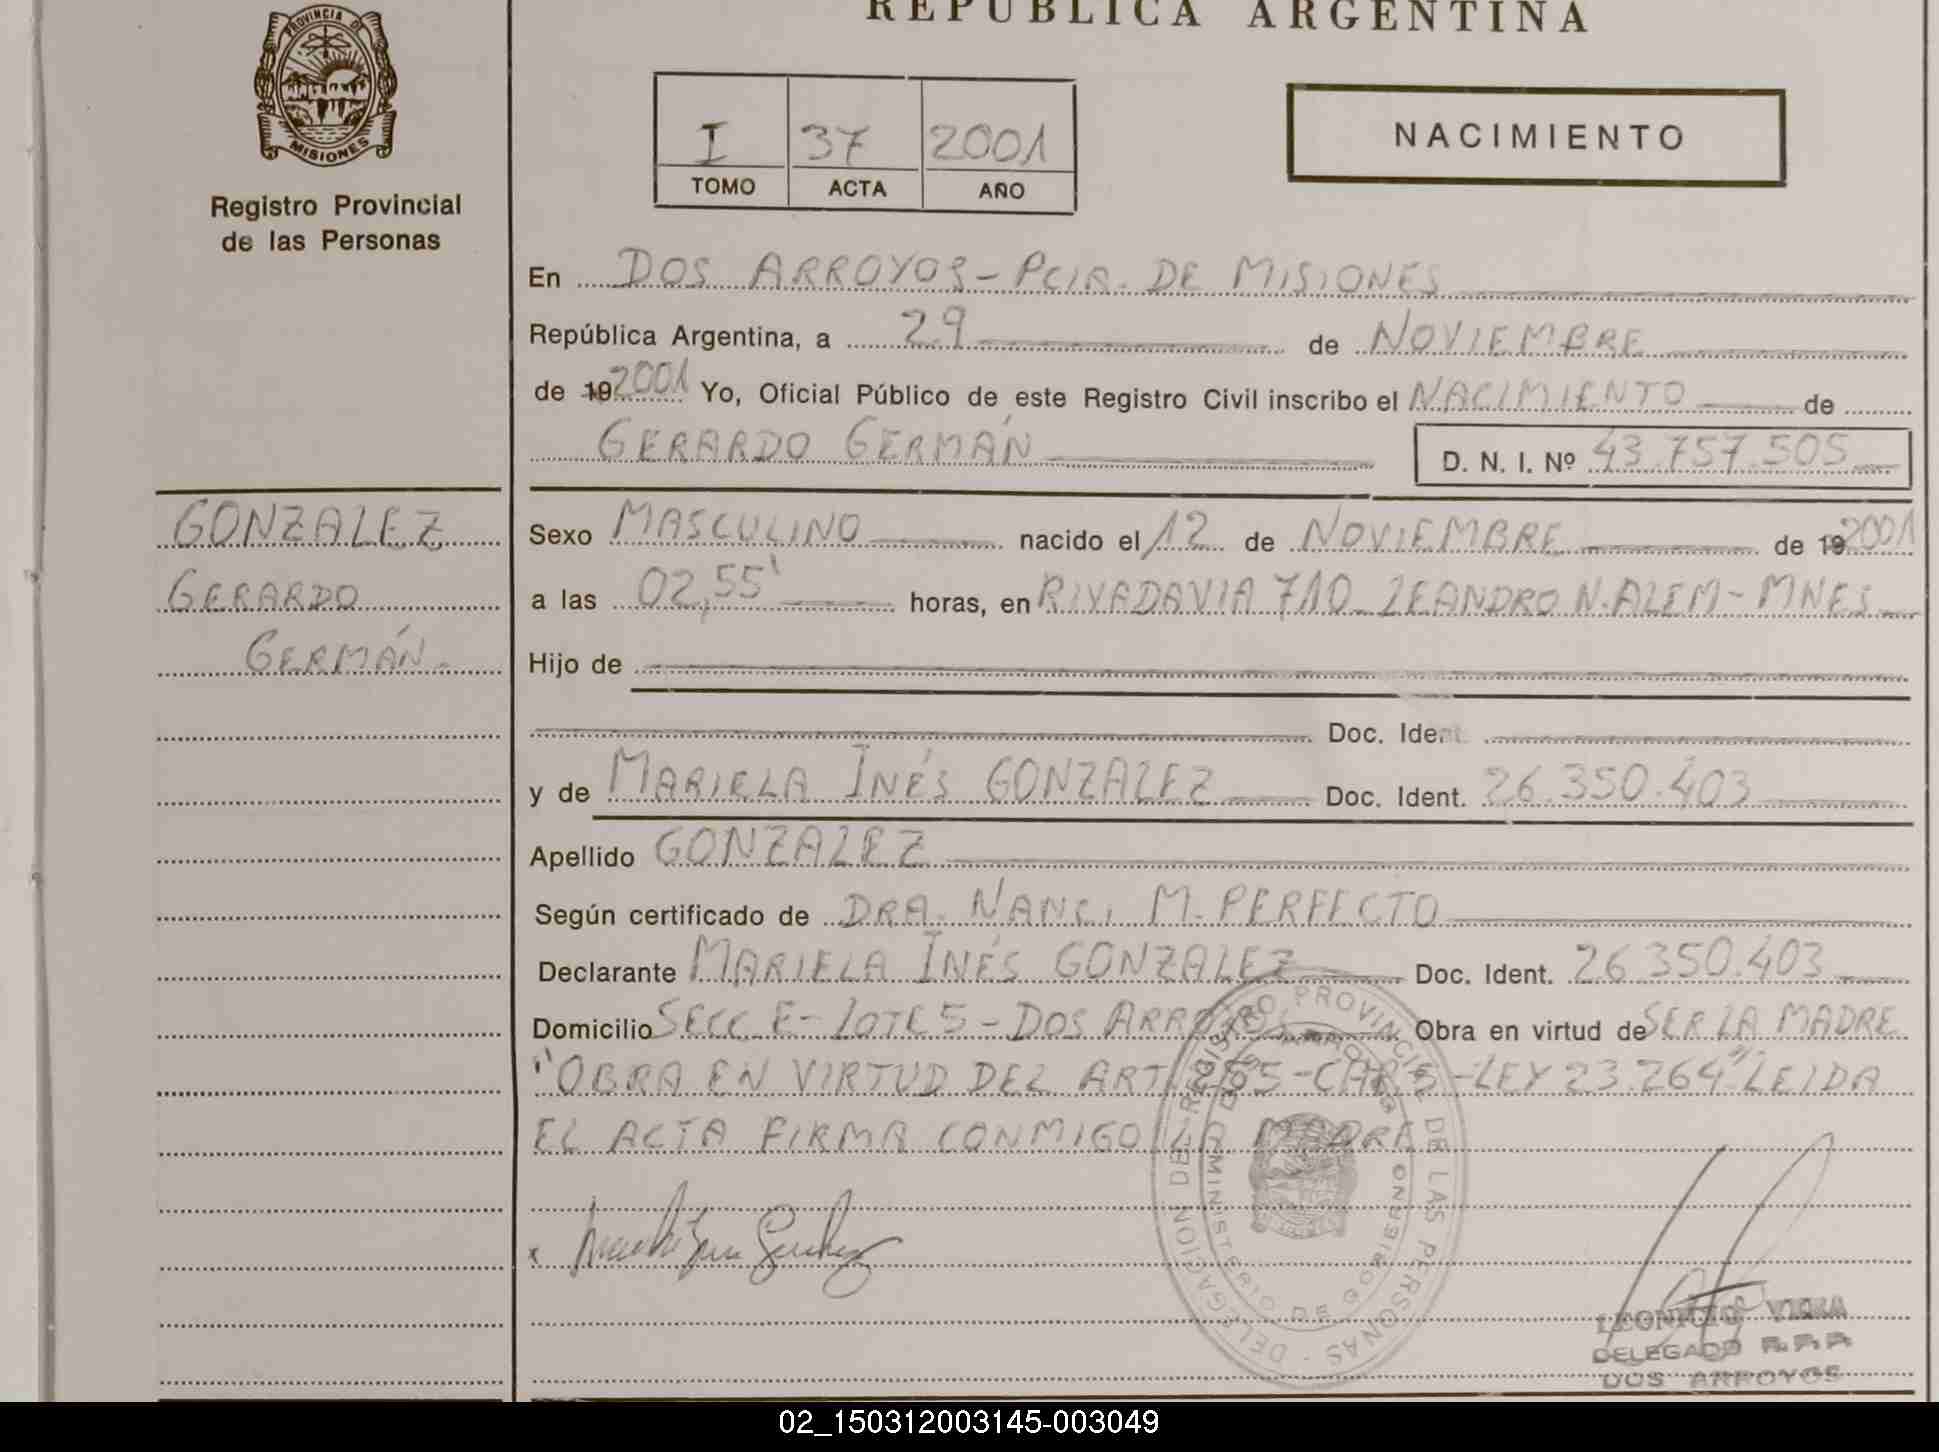 REPUBLICA ARGENTINA
PROVINCIA DE
MISIONES
Registro Provincial
de las Personas
I 37 2001
TOMO ACTA AÑO
NACIMIENTO
En DOS ARROYOS - PCIA. DE MISIONES
República Argentina, a 29 de NOVIEMBRE
de 19 2001 Yo, Oficial Público de este Registro Civil inscribo el NACIMIENTO de
GERARDO GERMÁN D. N. I. Nº 43.757.505
GONZALEZ
GERARDO
GERMÁN.
Sexo MASCULINO nacido el 12 de NOVIEMBRE de 19 2001
a las 02,55' horas, en RIVADAVIA 710 LEANDRO N. ALEM - MNES
Hijo de
Doc. Ident.
y de MARIELA INÉS GONZALEZ Doc. Ident. 26.350.403
Apellido GONZALEZ
Según certificado de DRA. NANCI M. PERFECTO
Declarante MARIELA INÉS GONZALEZ Doc. Ident. 26.350.403
Domicilio SECC E - LOTE 5 - DOS ARROYOS Obra en virtud de SER LA MADRE
"OBRA EN VIRTUD DEL ART. 255 - LEY 23.264" LEIDA
EL ACTA FIRMA CONMIGO LA MADRE
DELEGACION DEL REGISTRO PROVINCIAL DE LAS PERSONAS
MINISTERIO DE GOBIERNO
DOS ARROYOS
DELEGADO R.P.P.
DOS ARROYOS
02_150312003145-003049